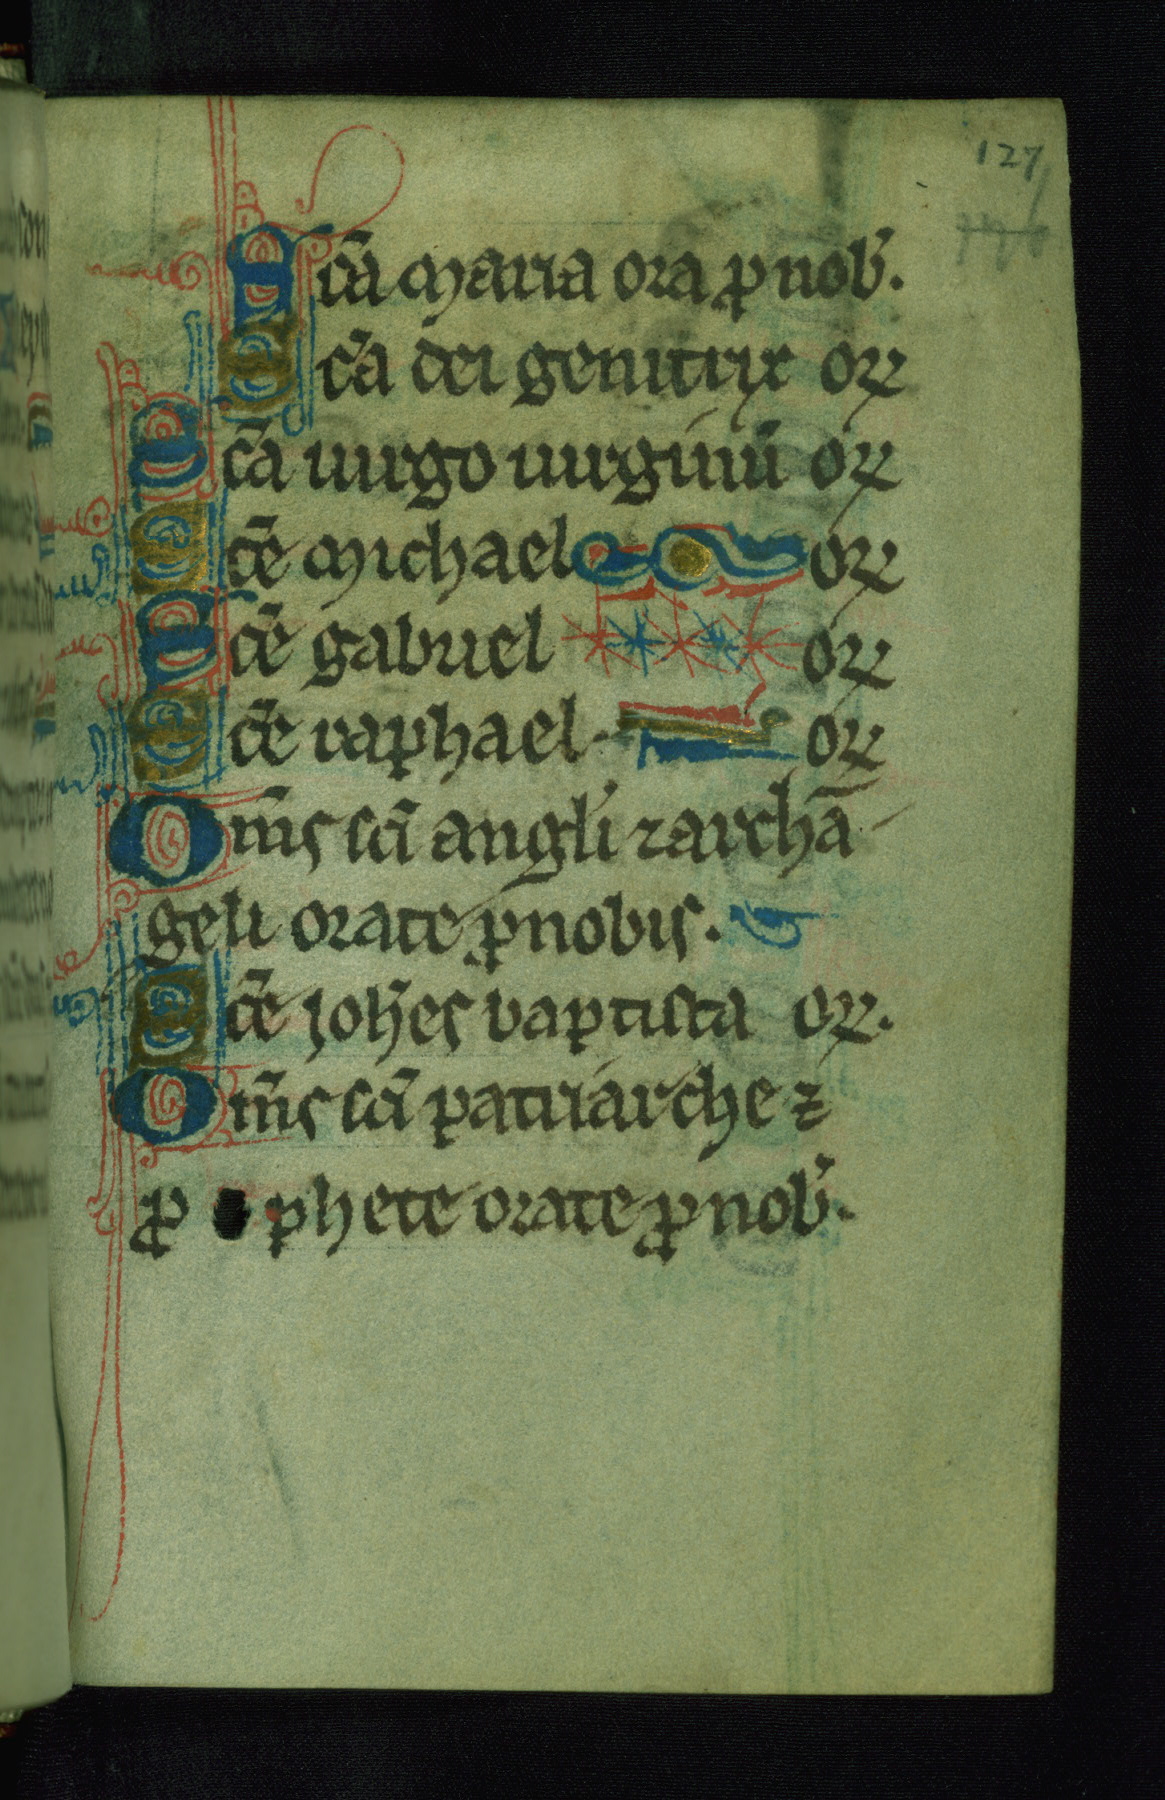 127
Scā maria ora ꝓ nob̄.
Scā dei genitrix oꝝ
Scā uirgo uirginū oꝝ
Scē michael oꝝ
Scē gabriel oꝝ
Scē raphael oꝝ
Om̄s scī angli ⁊ archā
geli orate ꝓ nobis.
Scē ioh̄es baptista oꝝ.
Om̄s scī patriarche ⁊
ꝓ phete orate ꝓ nob̄.